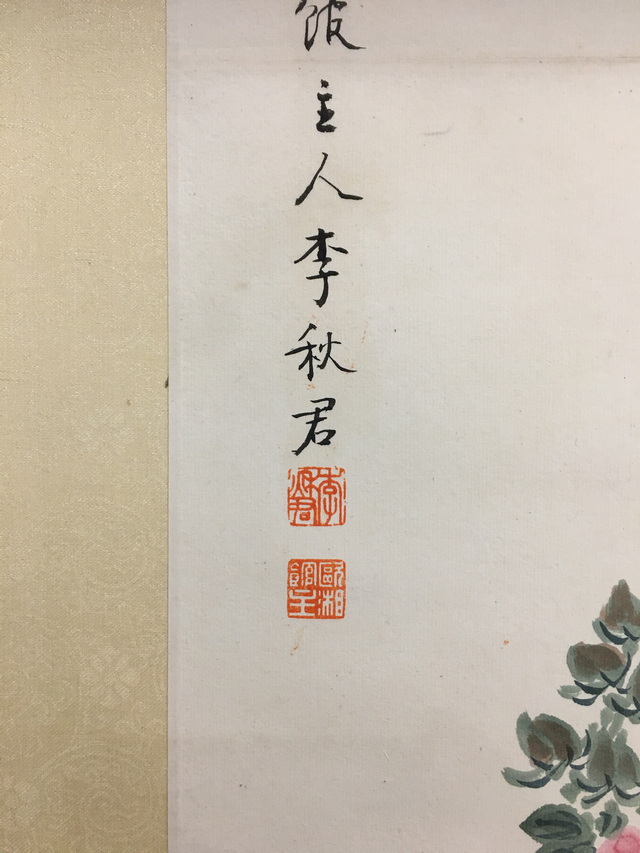 館主人李秋君
李秋君
歐湘館主